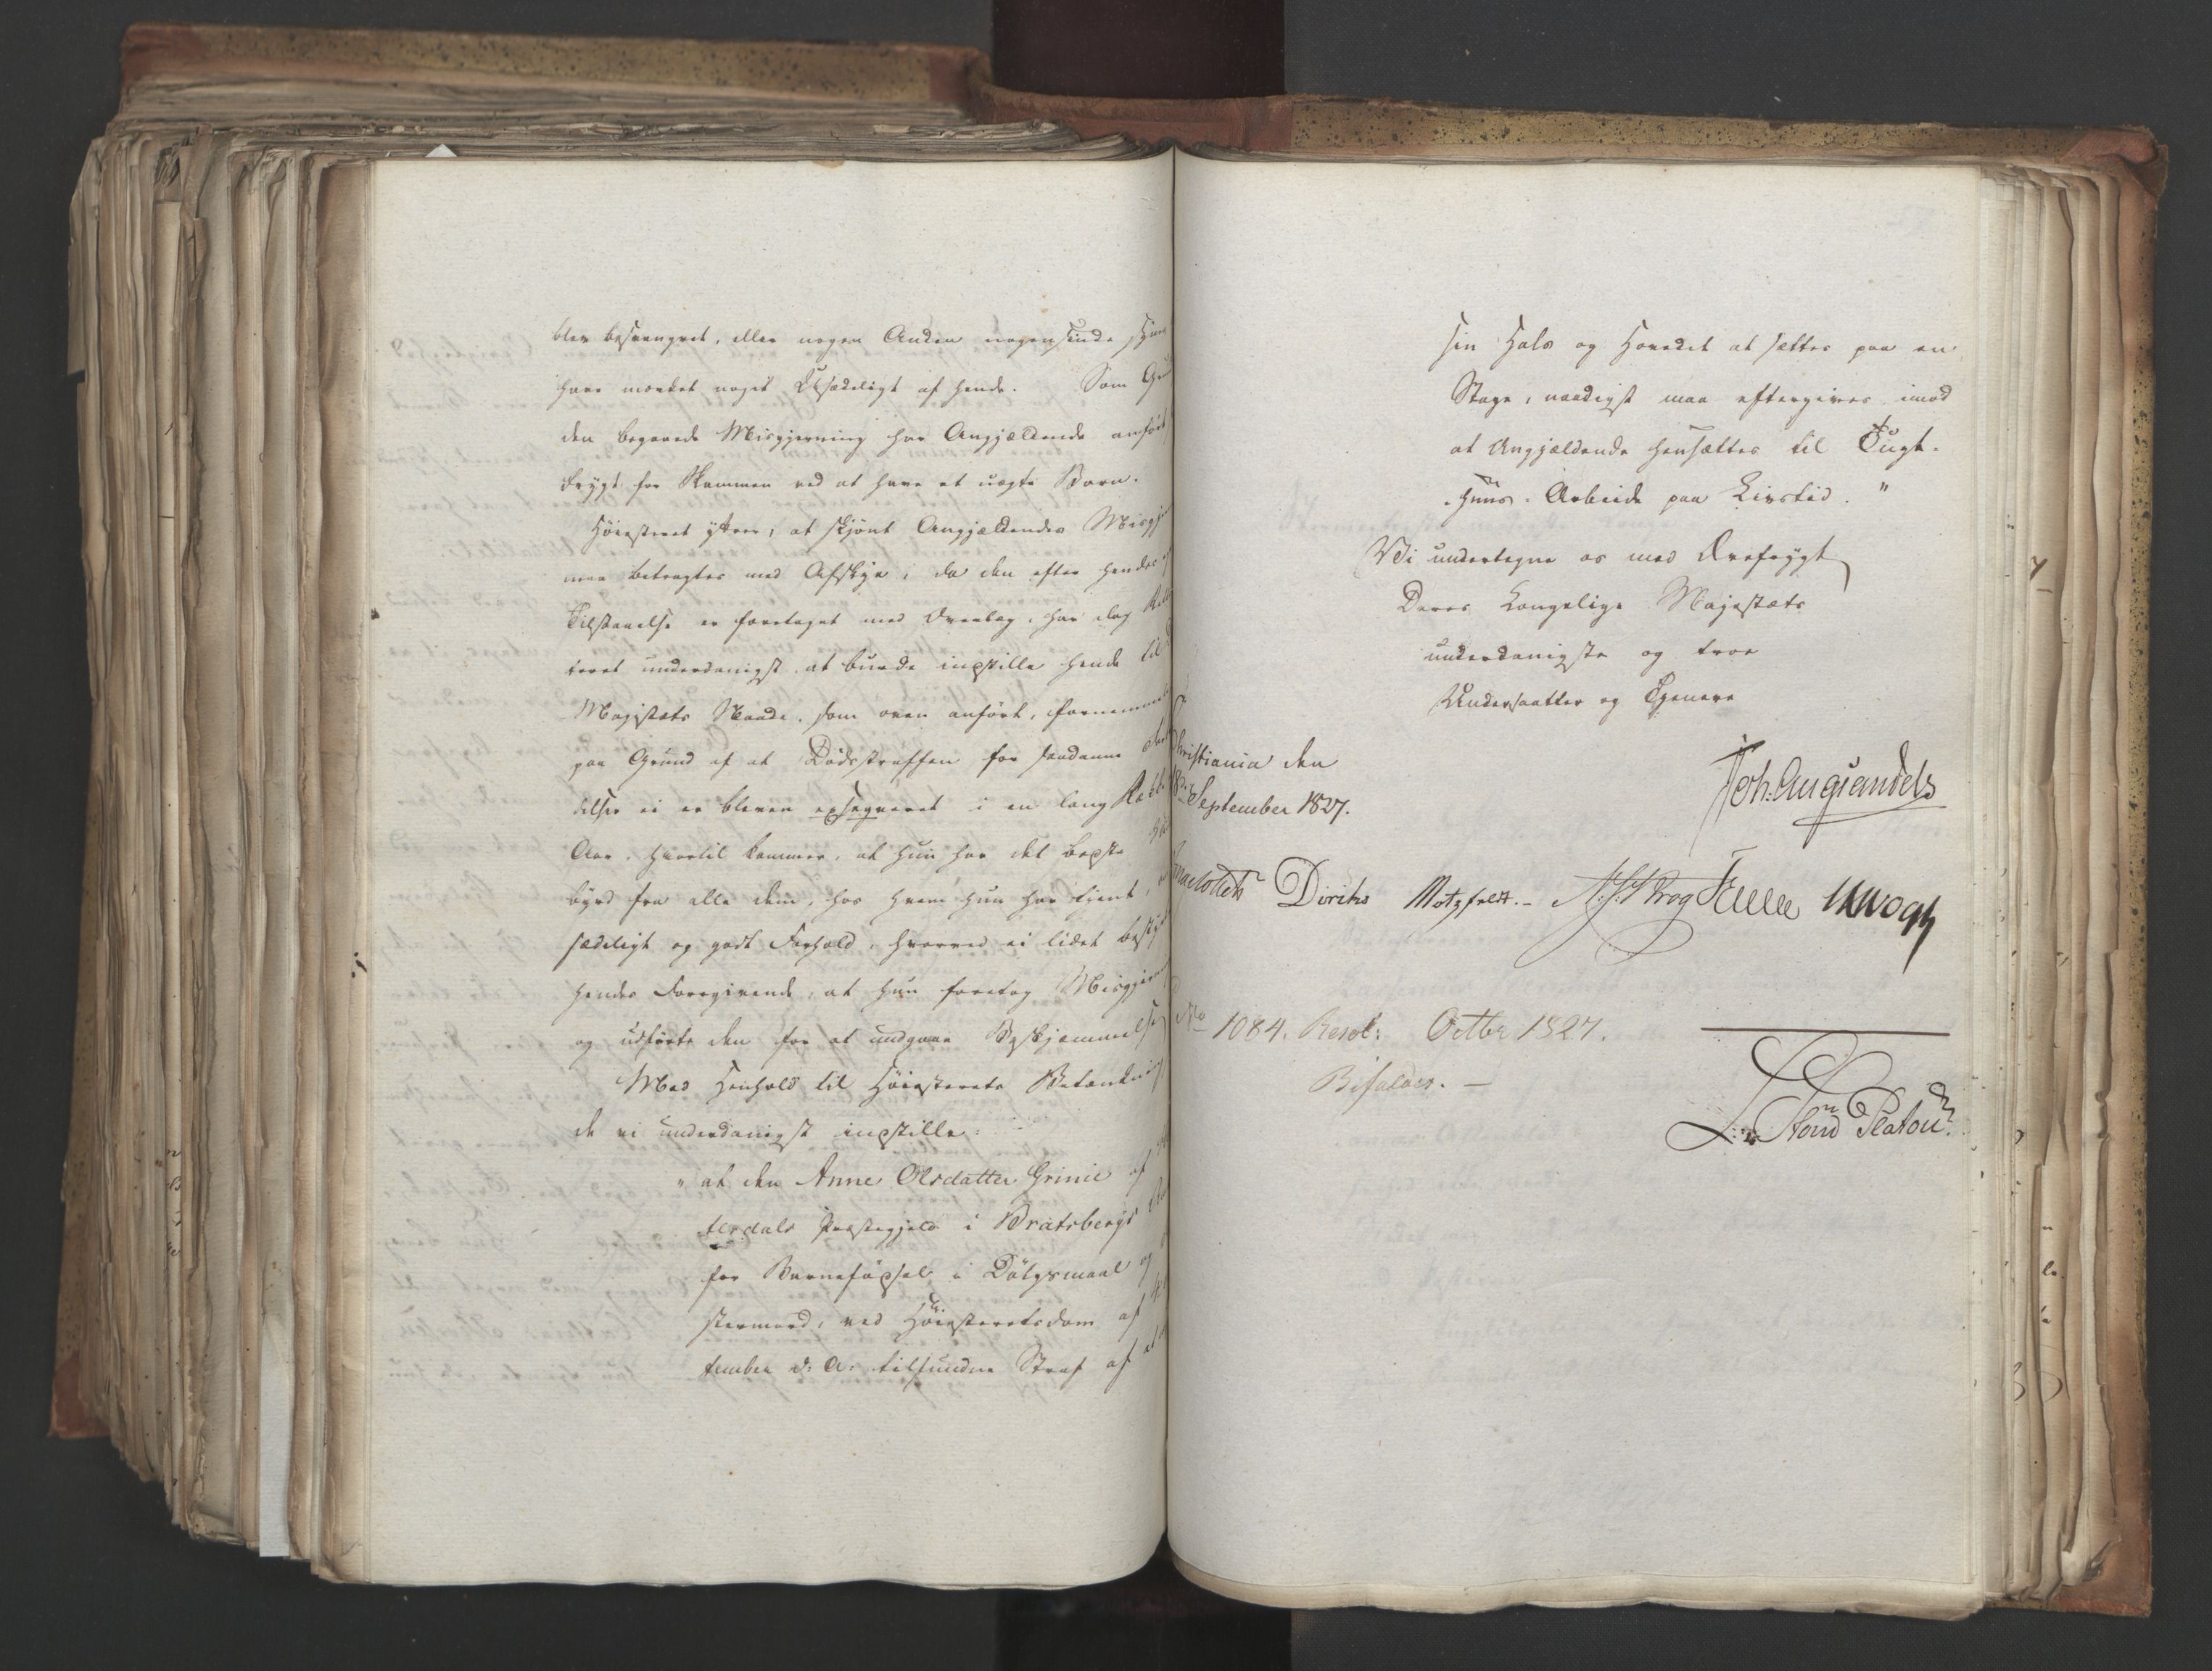 blev besvangret, eller nogen Anden nogensinde
have mærket noget Usædeligt af hende. Som
den begaaede Misgjerning har Angjældende anført
Frygt for Skammen ved at have et uægte Barn.
Høiesteret yttrer, at skjönt Angjældendes
maa betragtes med Afskye, da den efter hendes
Tilstaaelse er foretaget med Overlæg, har dog
teret underdanigst at burde indstille hende til
Majestæts Naade, som oven anført, fornemme
paa Grund af at Dödsstraffen for saadanne
delser ei er bleven exseqveret i en lang
Aar, hvortil kommer, at hun har det bedste
byrd fra alle dem, hos hvem hun har tjent,
sædeligt og godt Forhold, hvorved ei lidet
hendes Foregivende, at hun foretog
og udførte den for at undgaae Beskjæmmelse
Med Henhold til Høiesterets Betænkning
de vi underdanigst indstille:
" at den Anne Olsdatter Grinie af
terdals Præstegjeld i Bratsbergs
for Barnefødsel i Dölgsmaal og
stermord, ved Høiesteretsdom af
tember d: A: tilfundne Straf af at
sin Hals og Hovedet at sættes paa en
Stage, naadigst maa eftergives imod
at Angjældende hensættes til Tugt-
huus-Arbeide paa Livstid. "
Vi undertegne os med Ærefrygt
Deres Kongelige Majestæts
underdanigste og troe
Undersaatter og Tjenere
Christiania den
18de September 1827.
Joh: Aug Sandels
Diriks Motzfeldt.- Krog Fasting
No 1084. Resol: Octbr 1827.
Bifaldes. -